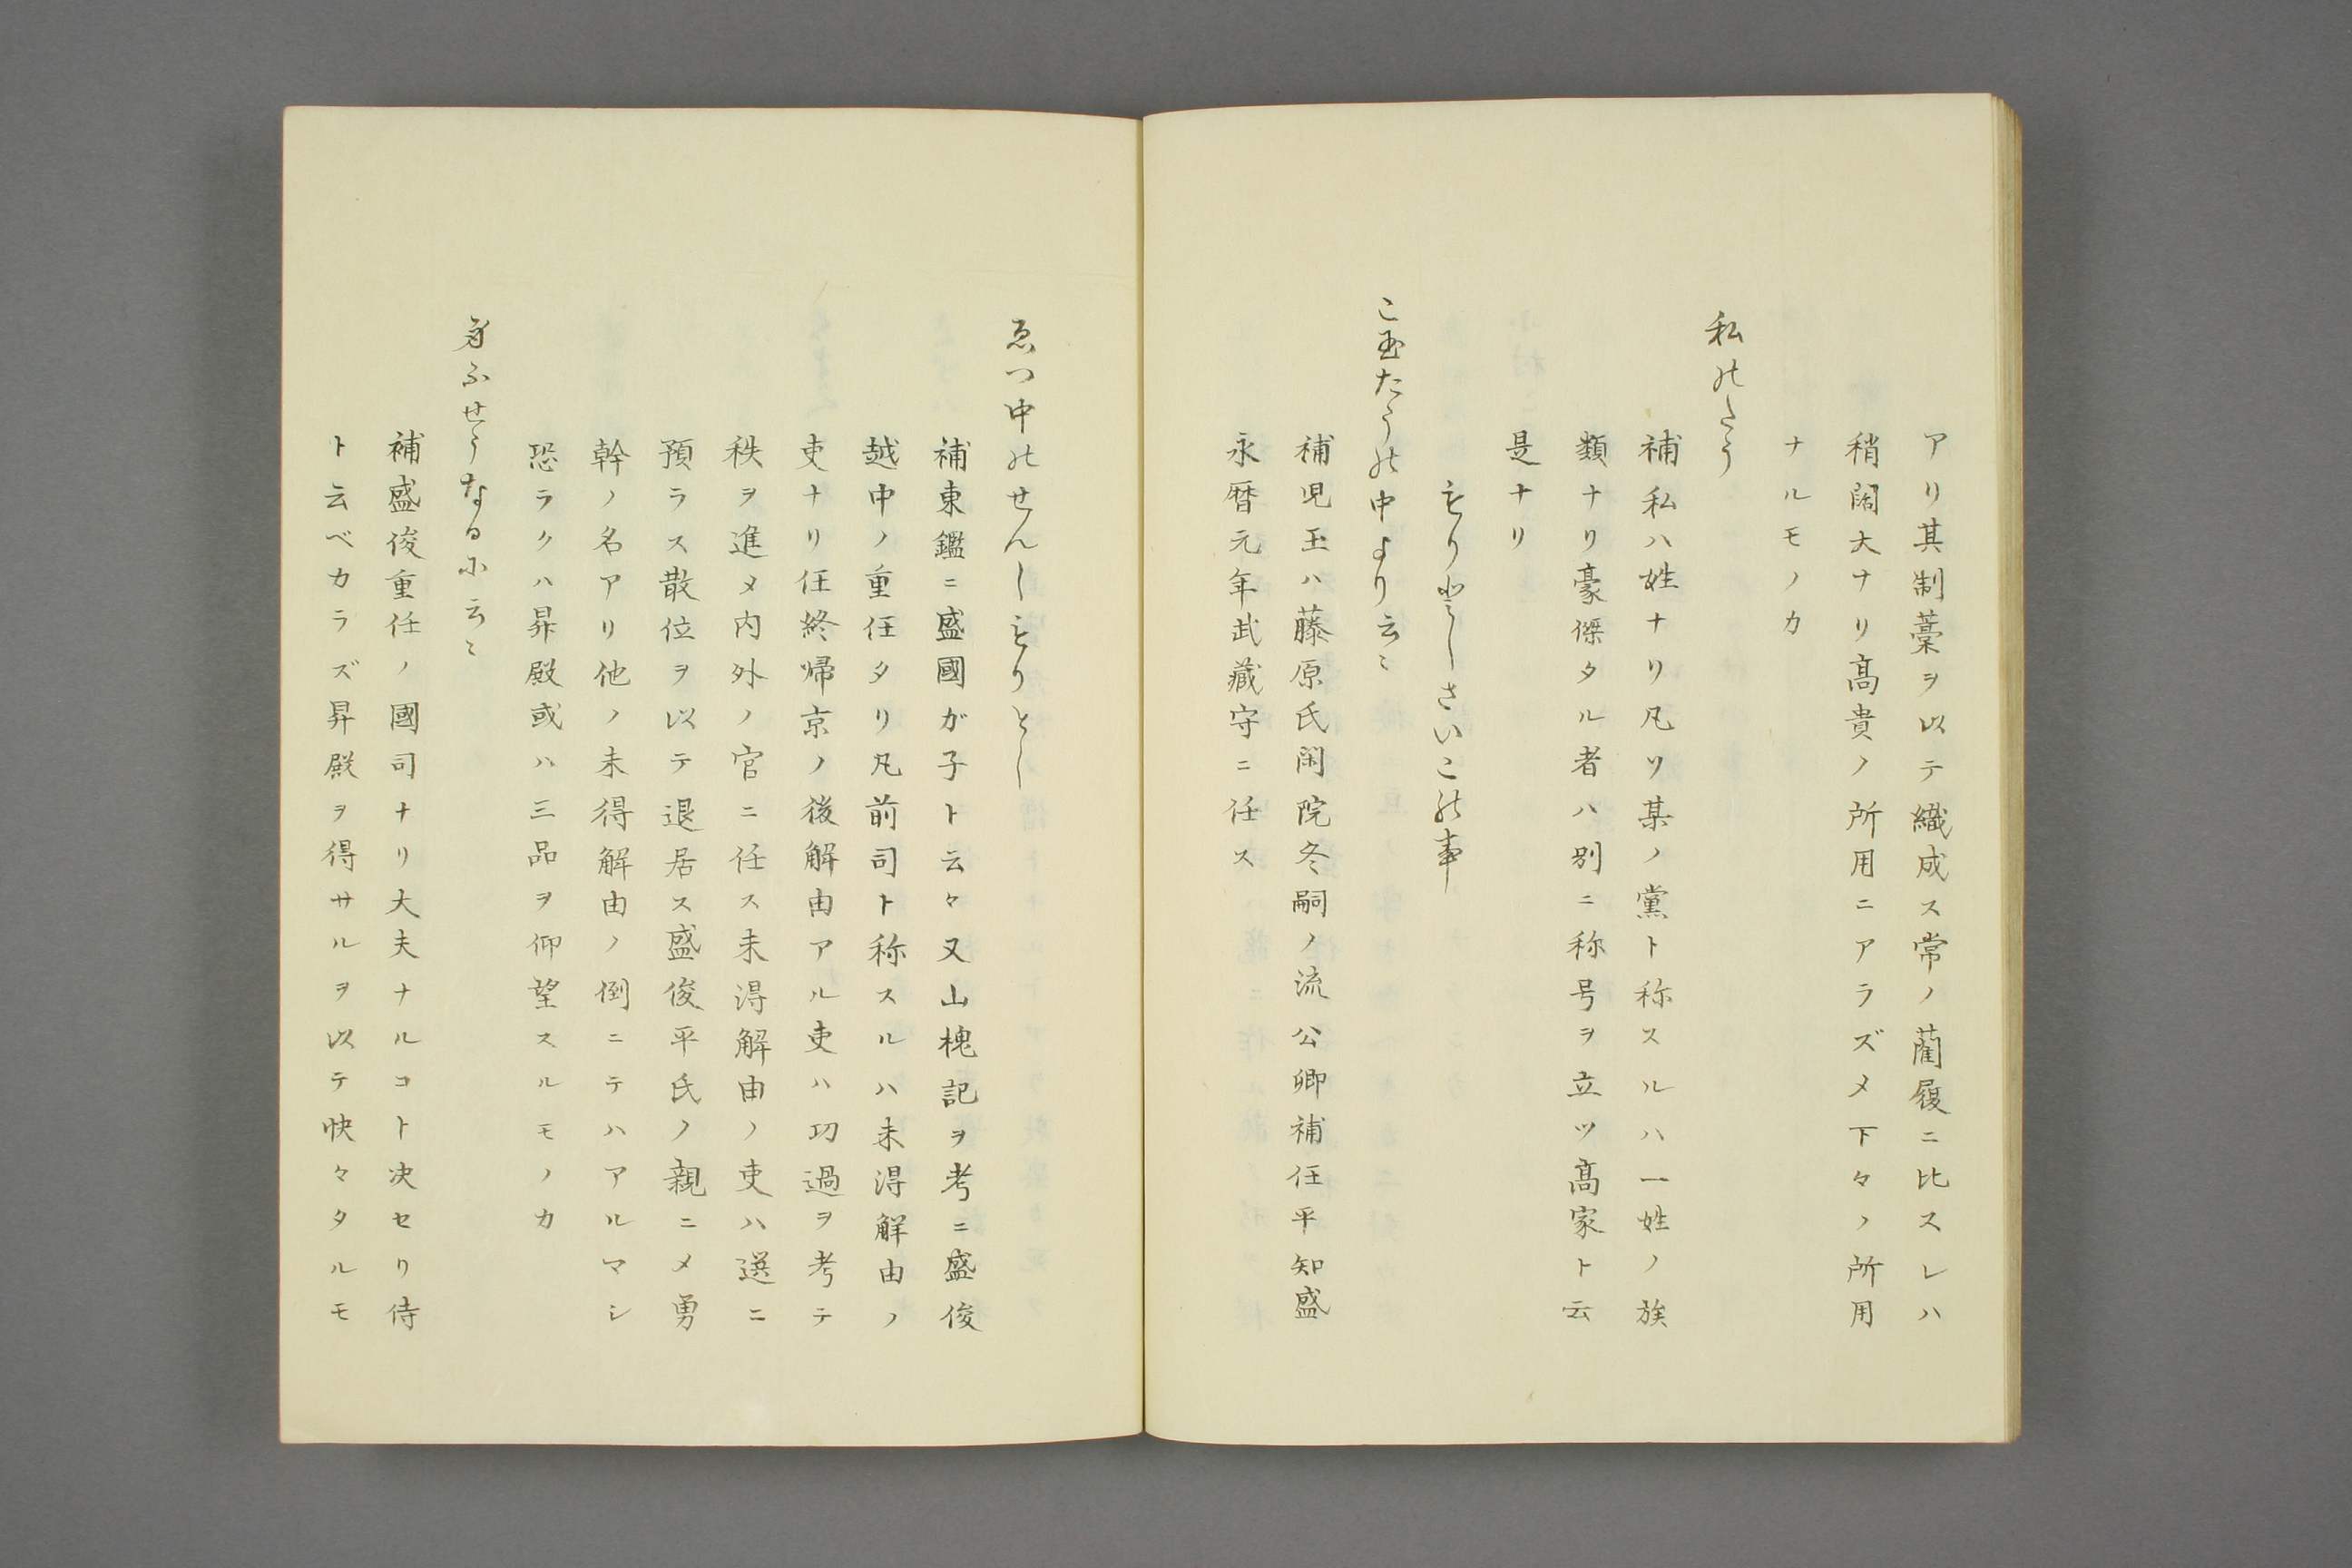 アリ其制藁ヲ以テ織成ス常ノ藺履ニ比スレハ
稍濶大ナリ髙貴ノ所用ニアラズメ下々ノ所用
ナルモノカ
私のたう
補私ハ姓ナリ凡ソ某ノ黨ト称スルハ一姓ノ族
類ナリ豪傑タル者ハ別ニ称号ヲ立ツ髙家ト云
是ナリ
もりとしさいこの事
こ玉たうの中より云〻
補児玉ハ藤原氏閑院冬嗣ノ流公卿補任平知盛
永暦元年武藏守ニ任ス
ゑつ中のせんしもりとし
補東鑑ニ盛國ガ子ト云々又山槐記ヲ考ニ盛俊
越中ノ重任タリ凡前司ト称スルハ未得解由ノ
吏ナリ任終帰京ノ後解由アル吏ハ功過ヲ考テ
秩ヲ進メ内外ノ官ニ任ス未得解由ノ吏ハ選ニ
預ラス散位ヲ以テ退居ス盛俊平氏ノ親ニメ勇
幹ノ名アリ他ノ未得解由ノ倒ニテハアルマシ
恐ラクハ昇殿或ハ三品ヲ仰望スルモノカ
身ふせうなる小云〻
補盛俊重任ノ國司ナリ大夫ナルコト决セリ侍
ト云ベカラズ昇殿ヲ得サルヲ以テ怏々タルモ